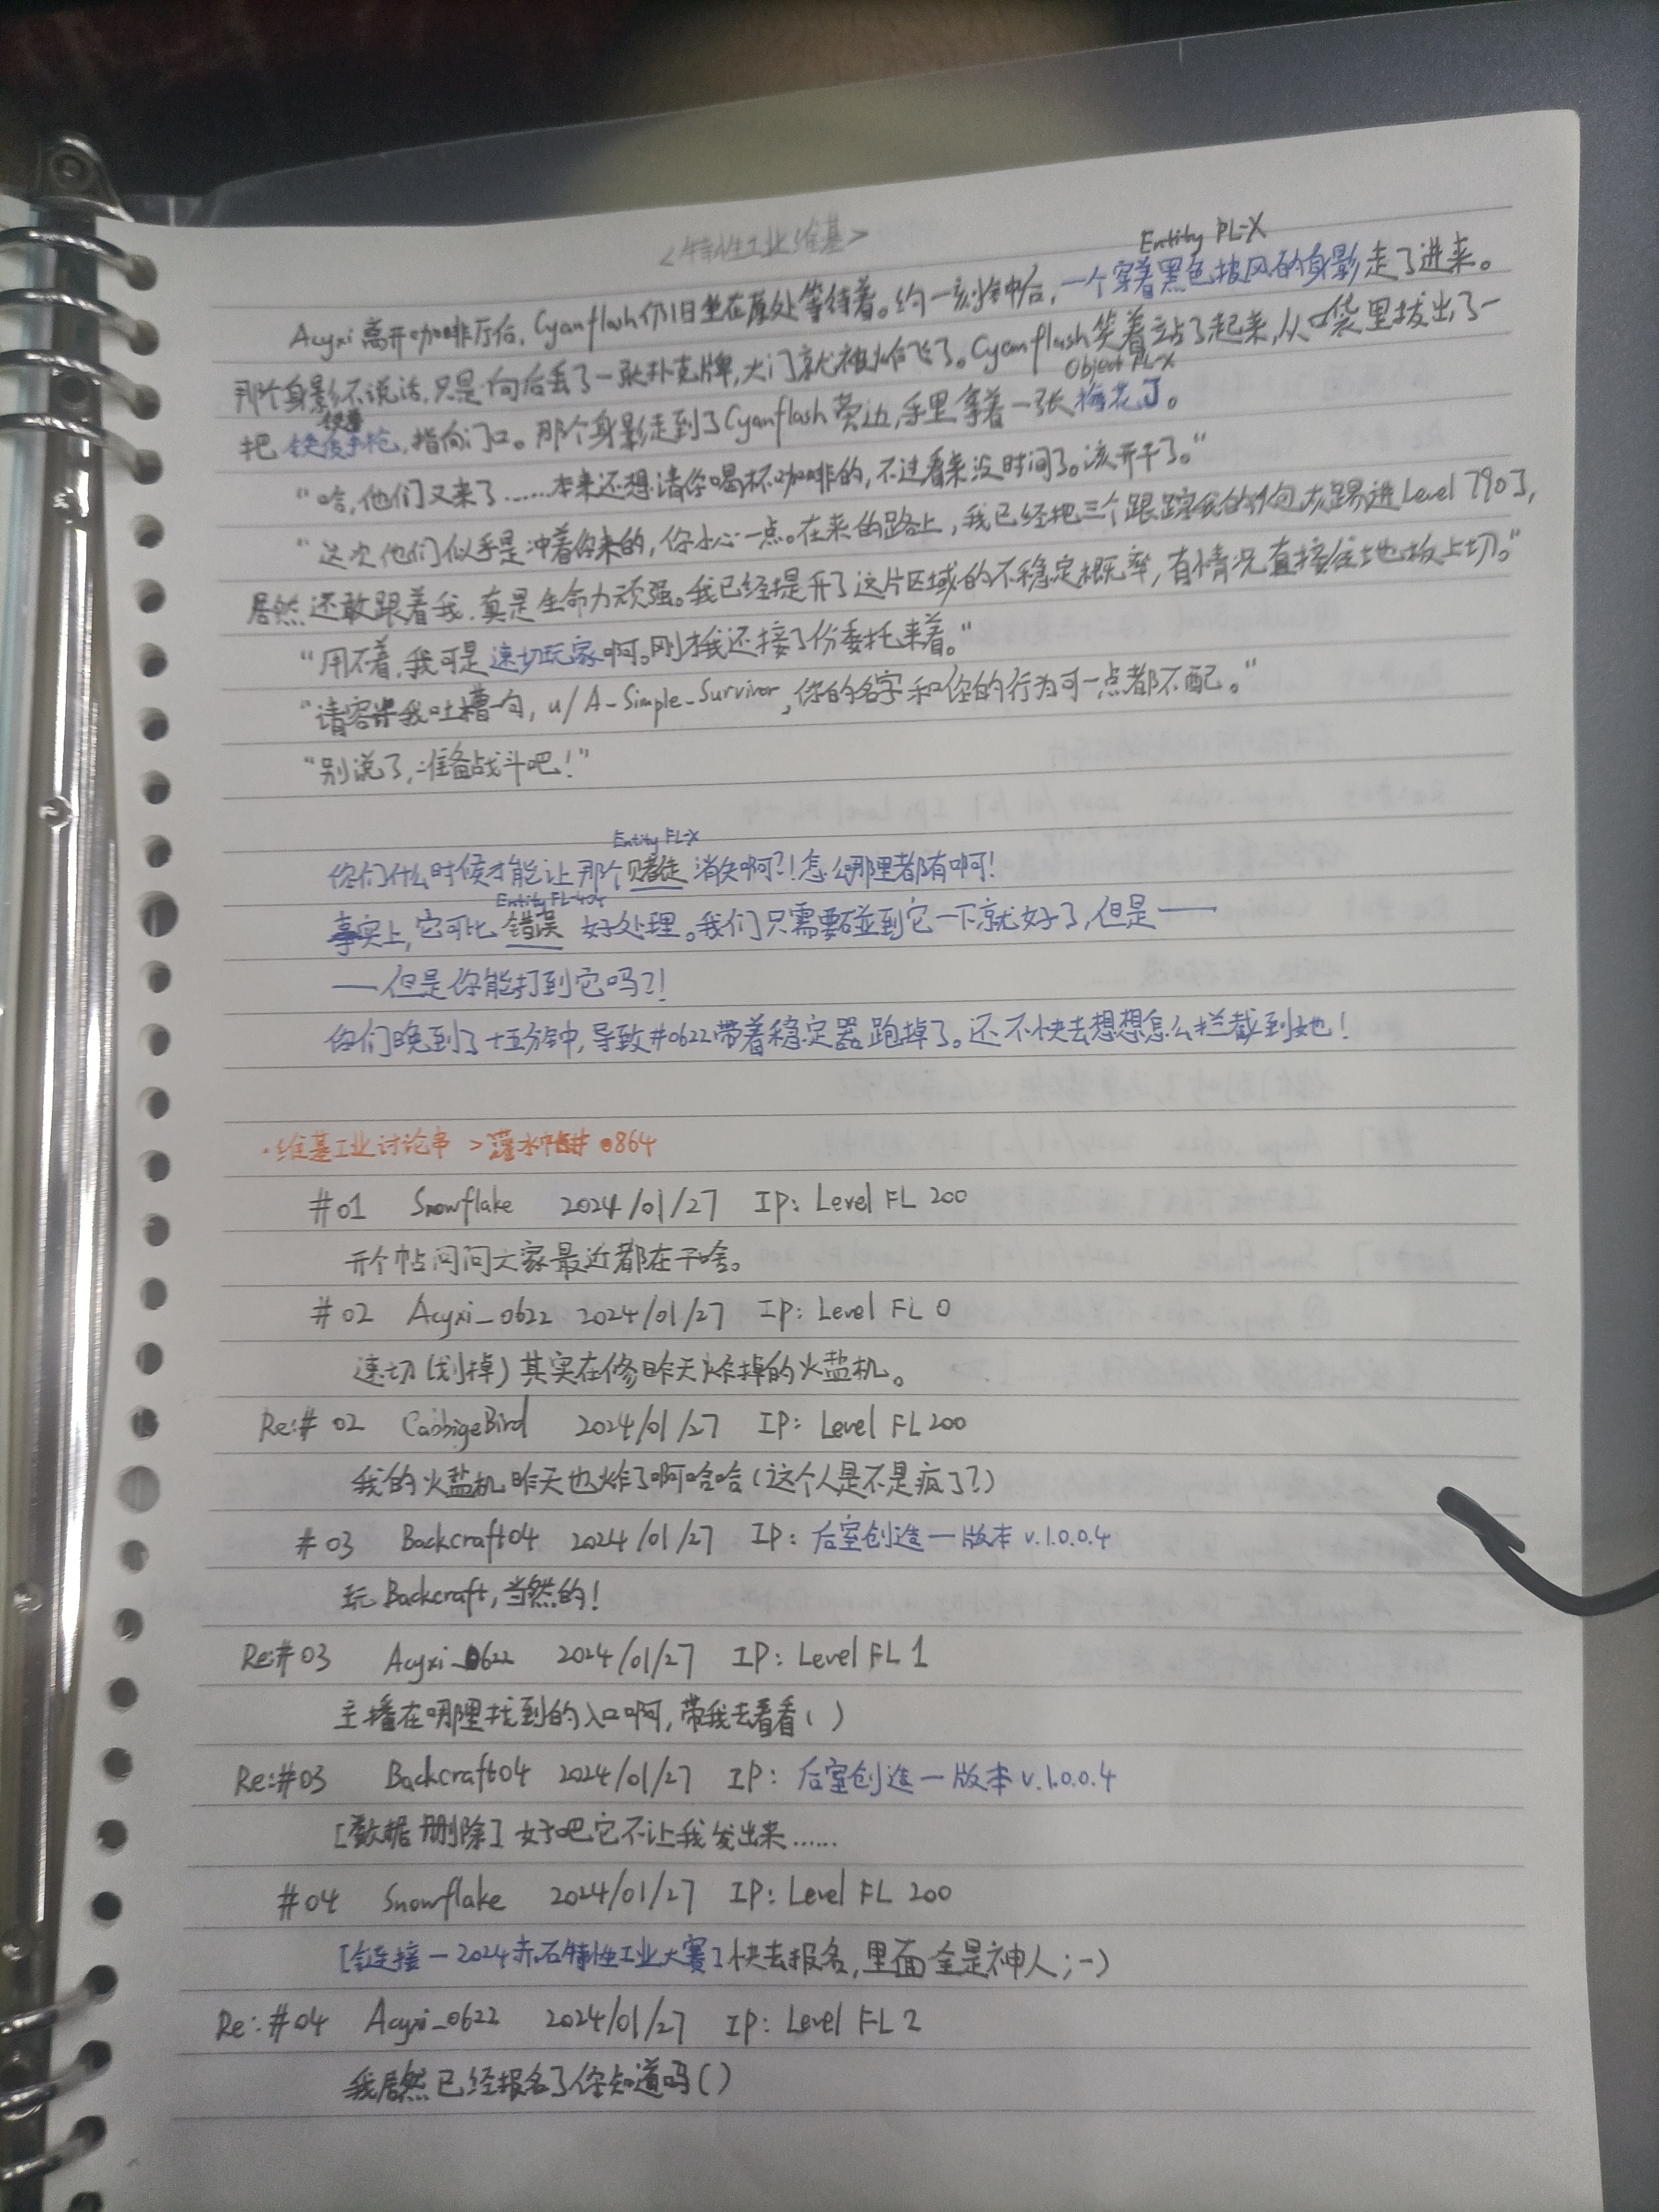 <特性工业维基>
Entity PL-X
Acyxi离开咖啡厅后，Cyanflash仍旧坐在原处等待着。约一刻钟后，一个穿着黑色披风的身影走了进来。
那个身影不说话，只是向后丢了一张扑克牌，大门就被炸飞了。Cyanflash笑着站了起来，从口袋里拔出了一
Object PL-X
把 手枪，指向门口。那个身影走到了Cyanflash旁边，手里拿着一张梅花J。
“哈，他们又来了……本来还想请你喝杯咖啡的，不过看来没时间了。该开干了。”
“这次他们似乎是冲着你来的，你小心一点。在来的路上，我已经把三个跟踪我的 踢进Level 790了，
居然还敢跟着我，真是生命力顽强。我已经提升了这片区域的不稳定概率，有情况直接往地板上切。”
“用不着，我可是速切玩家啊。刚才我还接了份委托来着。”
“请容许我吐槽一句，u/A-Simple-Survivor，你的名字和你的行为可一点都不配。”
“别说了，准备战斗吧！”
Entity FL-X
你们什么时候才能让那个赌徒消失啊？！怎么哪里都有啊！
Entity FL-404
事实上，它可比 错误 好处理。我们只需要碰到它一下就好了，但是——
——但是你能打到它吗？！
你们晚到了十五分钟，导致#0622带着稳定器跑掉了。还不快去想想怎么拦截到她！
·维基工业讨论串 >灌水帖#0864
#01 Snowflake 2024/01/27 IP: Level FL 200
开个帖问问大家最近都在干啥。
#02 Acyxi_0622 2024/01/27 IP: Level FL 0
速切（划掉）其实在修昨天炸掉的火盐机。
Re:#02 CabbigeBird 2024/01/27 IP: Level FL 200
我的火盐机昨天也炸了啊哈哈（这个人是不是疯了？）
#03 Backcraft04 2024/01/27 IP: 后室创造—版本v.1.0.0.4
玩Backcraft，当然的！
Re:#03 Acyxi_0622 2024/01/27 IP: Level FL 1
主播在哪里找到的入口啊，带我去看看（）
Re:#03 Backcraft04 2024/01/27 IP: 后室创造—版本v.1.0.0.4
[数据删除] 好吧它不让我发出来……
#04 Snowflake 2024/01/27 IP: Level FL 200
[链接—2024赤石特性工业大赛]快去报名，里面全是神人；-)
Re:#04 Acyxi_0622 2024/01/27 IP: Level FL 2
我居然已经报名了你知道吗（）